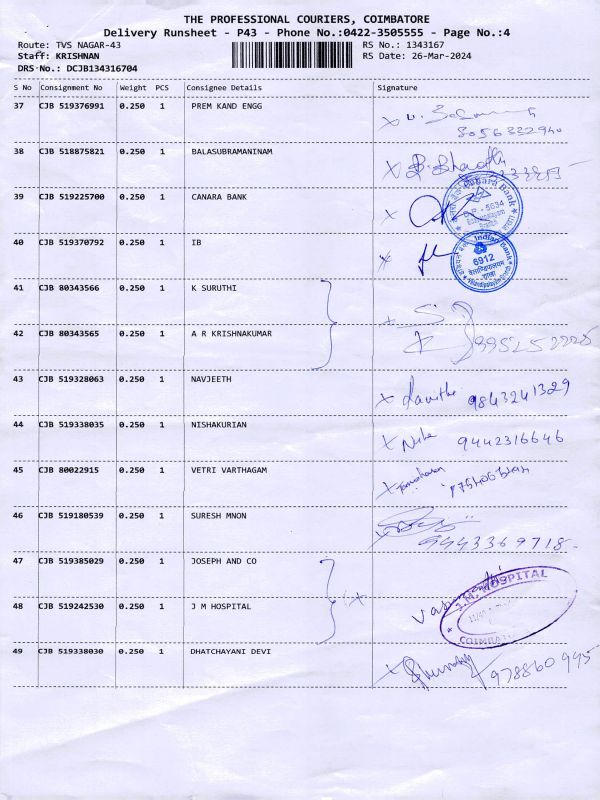 THE PROFESSIONAL COURIERS, COIMBATORE
Delivery Runsheet - P43 - Phone No.:0422-3505555 - Page No.:4
Route: TVS NAGAR-43 RS No.: 1343167
Staff: KRISHNAN RS Date: 26-Mar-2024
DRS-No.: DCJB134316704
S No Consignment No Weight PCS Consignee Details Signature
37 CJB 519376991 0.250 1 PREM KAND ENGG
3056332940
38 CJB 518875821 0.250 1 BALASUBRAMANINAM
39 CJB 519225700 0.250 1 CANARA BANK
Canara Bank
5634
40 CJB 519370792 0.250 1 IB
Indian Bank
6912
41 CJB 80343566 0.250 1 K SURUTHI
42 CJB 80343565 0.250 1 A R KRISHNAKUMAR
43 CJB 519328063 0.250 1 NAVJEETH
9843241329
44 CJB 519338035 0.250 1 NISHAKURIAN
9442316646
45 CJB 80022915 0.250 1 VETRI VARTHAGAM
46 CJB 519180539 0.250 1 SURESH MNON
9943369718-
47 CJB 519385029 0.250 1 JOSEPH AND CO
48 CJB 519242530 0.250 1 J M HOSPITAL
J.M. HOSPITAL
49 CJB 519338030 0.250 1 DHATCHAYANI DEVI
978860995